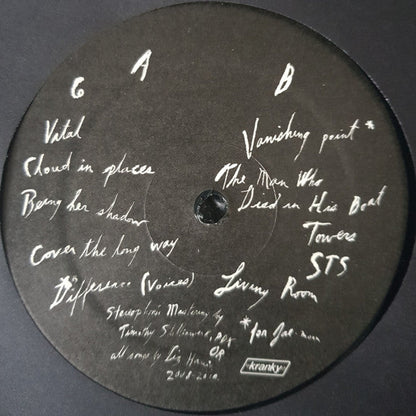 G A B
Vatal
Cloud in places
Being her shadow
Cover the long way
*Difference (Voices)
Vanishing point *
The Man Who
Died in His Boat
Towers
STS
Living Room
Stereophonic Mastering by
Timothy Stollenwerk, PDX
OR
all songs by Liz Harris
2008-2010
* for Jae-
kranky